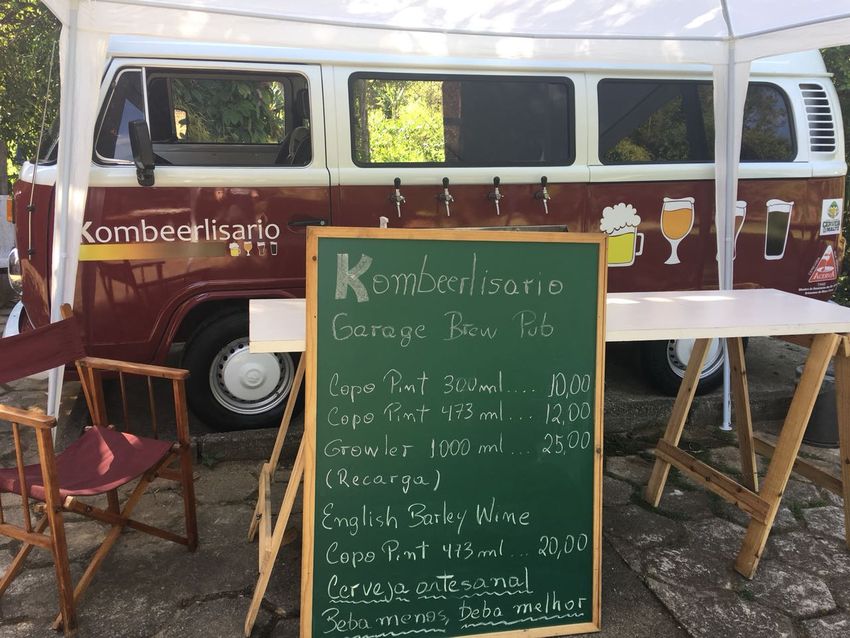 Kombeerlisario
Kombeerlisario
Garage Brew Pub
Copo Pint 300ml.... 10,00
Copo Pint 473ml.... 12,00
Growler 1000 ml... 25,00
(Recarga)
English Barley Wine
Copo Pint 473ml... 20,00
Cerveja artesanal
Beba menos, beba melhor